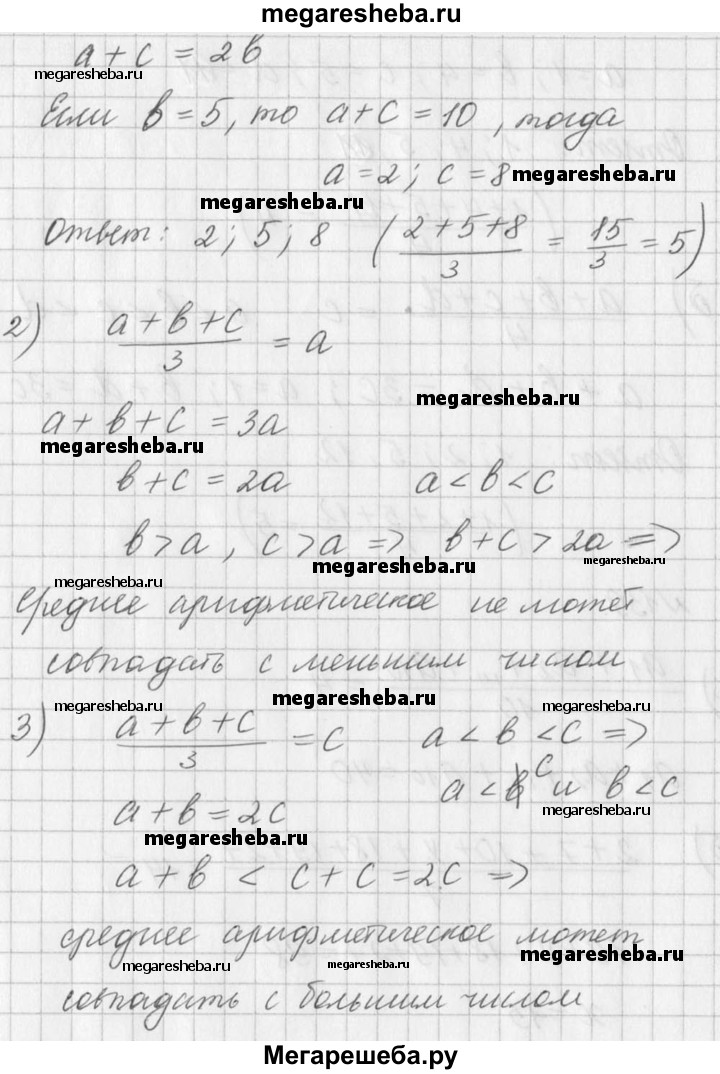 megaresheba.ru
a + c = 2b
megaresheba.ru
Если b = 5, то a + c = 10, тогда
a = 2; c = 8 megaresheba.ru
megaresheba.ru
Ответ: 2; 5; 8 ( (2+5+8)/3 = 15/3 = 5 )
2) (a + b + c)/3 = a
megaresheba.ru
a + b + c = 3a
megaresheba.ru
b + c = 2a a < b < c
b > a, c > a => b + c > 2a =>
megaresheba.ru megaresheba.ru megaresheba.ru
среднее арифметическое не может
совпадать с меньшим числом
megaresheba.ru megaresheba.ru megaresheba.ru
3) (a + b + c)/3 = c a < b < c =>
a < c и b < c
megaresheba.ru
a + b = 2c
megaresheba.ru
a + b < c + c = 2c =>
среднее арифметическое может
megaresheba.ru megaresheba.ru megaresheba.ru
совпадать с большим числом
Мегарешеба.ру